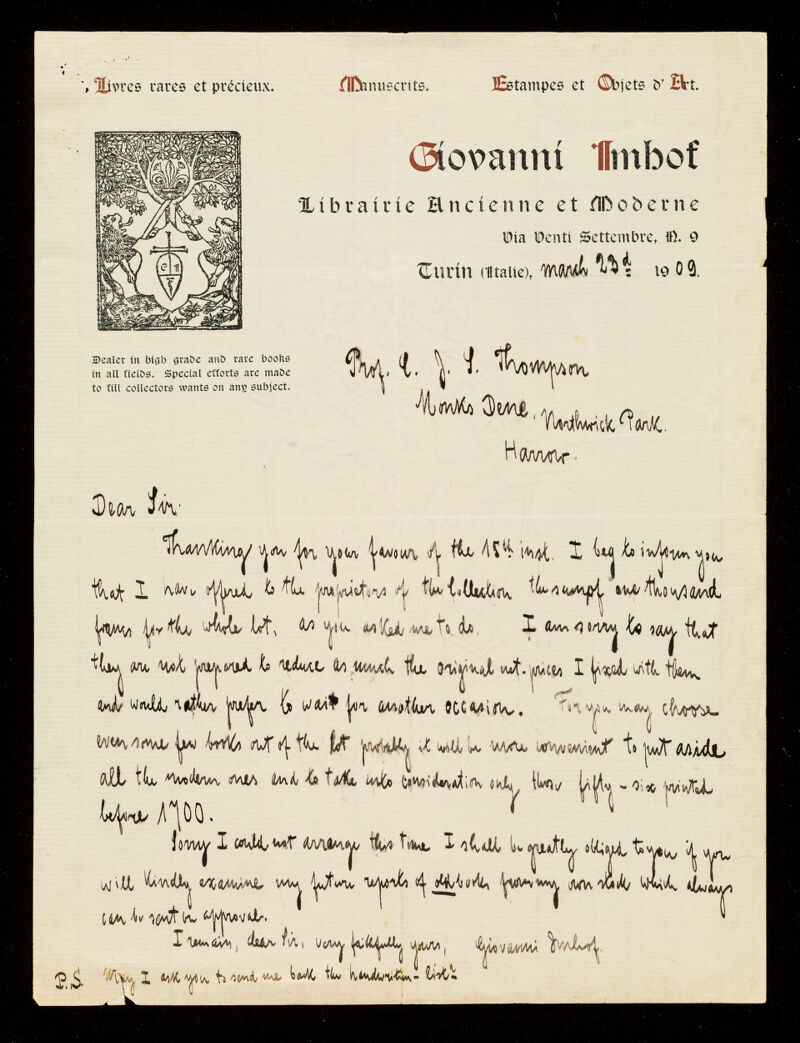 Livres rares et précieux. Manuscrits. Estampes et Objets d'Art.
Giovanni Imhof
Librairie Ancienne et Moderne
Via Venti Settembre, N. 9
Turin (Italie), march 23d 1909.
Dealer in high grade and rare books
in all fields. Special efforts are made
to fill collectors wants on any subject.
Prof. C. J. S. Thompson
Monks Dene, Northwick Park.
Harrow.
Dear Sir.
Thanking you for your favour of the 15th inst. I beg to inform you
that I have offered to the proprietors of the Collection the sum of one thousand
francs for the whole lot, as you asked me to do. I am sorry to say that
they are not prepared to reduce as much the original net-prices I fixed with them
and would rather prefer to wait for another occasion. For you may choose
even some few books out of the lot probably it will be more convenient to put aside
all the modern ones and to take into consideration only those fifty-six printed
before 1700.
Sorry I could not arrange this time I shall be greatly obliged to you if you
will kindly examine my future reports of old books from my own stock which always
can be sent on approval.
I remain, dear Sir, very faithfully yours, Giovanni Imhof.
P.S. May I ask you to send me back the handwritten-list?